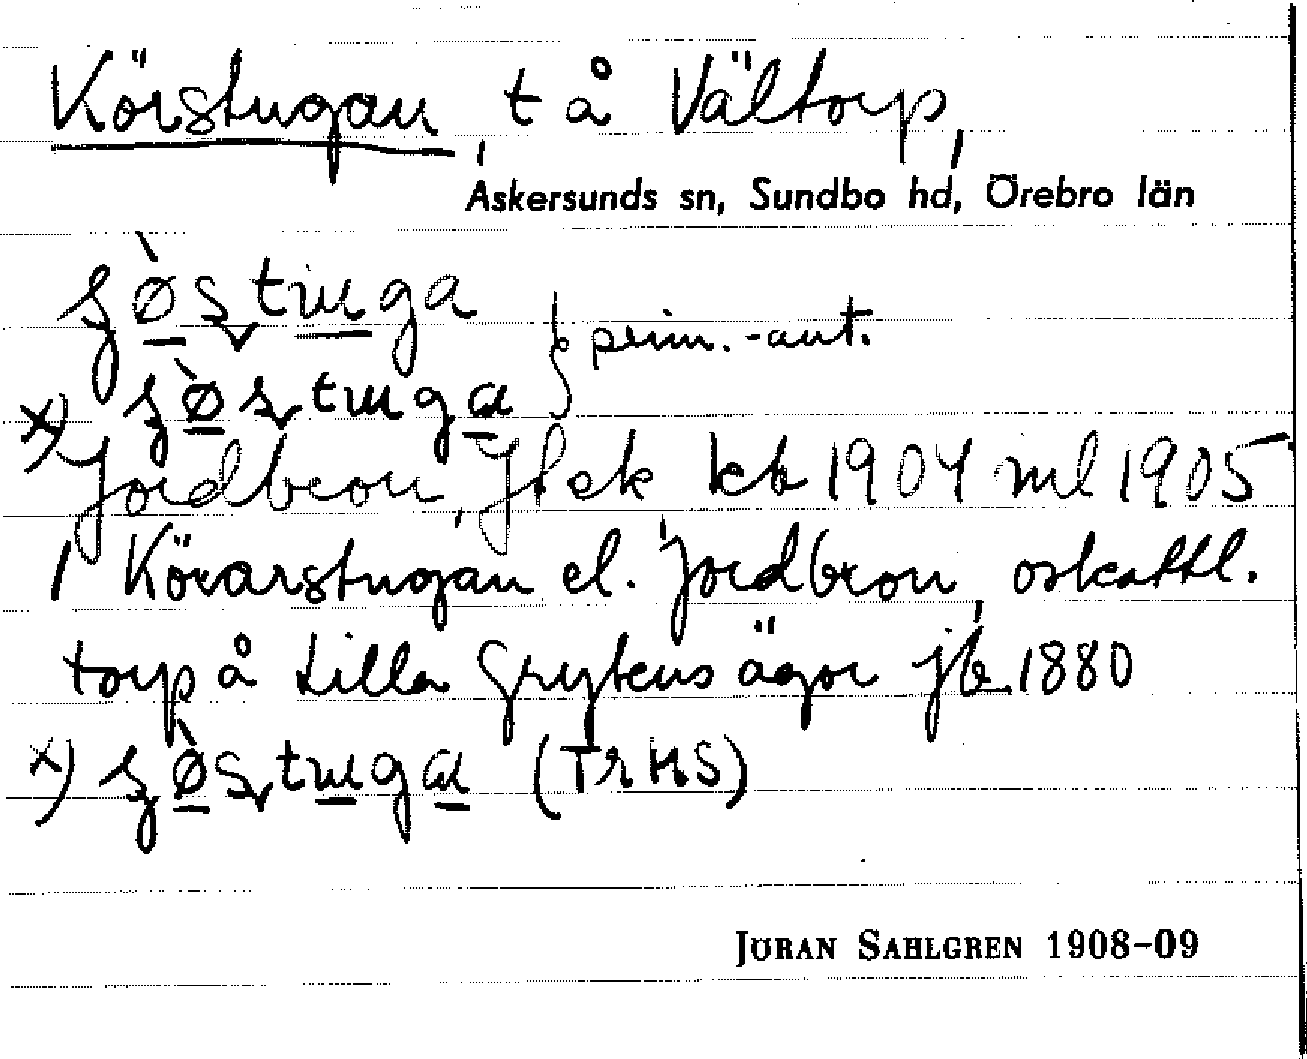 Körstugan, t å Vältorp,
Askersunds sn, Sundbo hd, Örebro län
prim.-ant.
x)
Jordbron, Jfsk kb 1904 ml 1905
/ Körarstugan el. Jordbron, oskattl.
torp å Lilla Grytens ägor jb 1880
x) (Tr HS)
JÖRAN SAHLGREN 1908-09